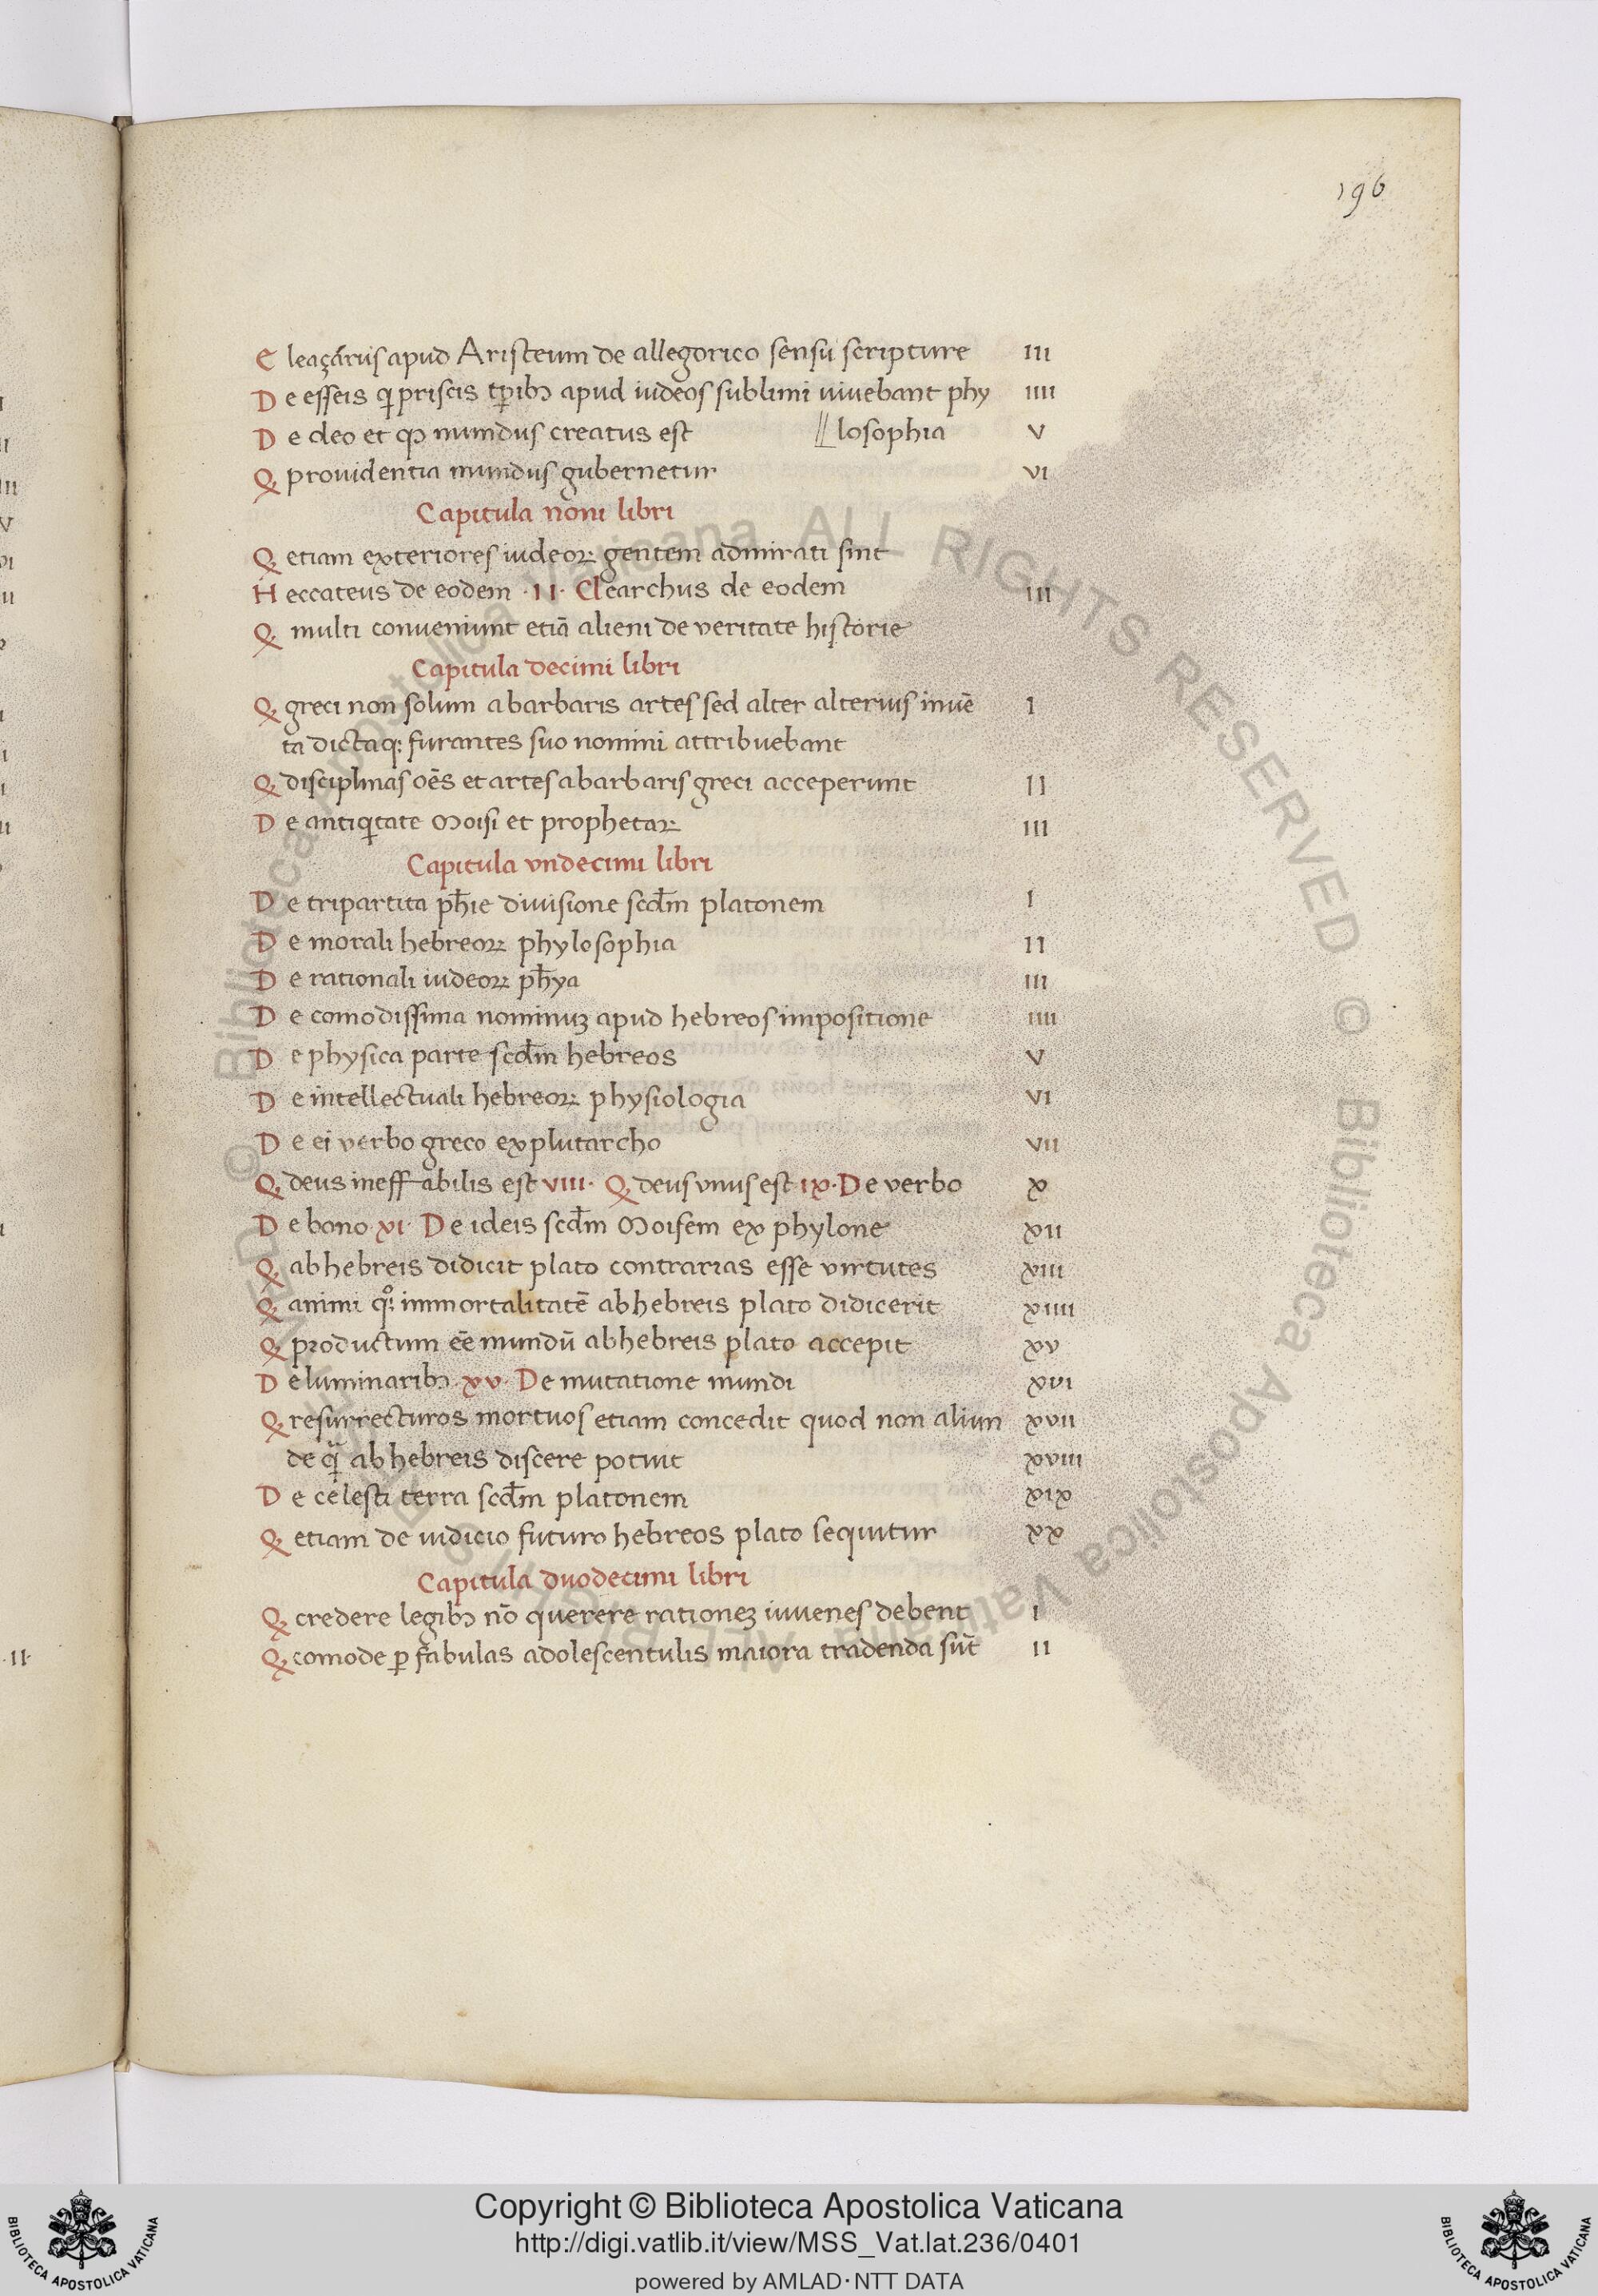 196
Eleaçarus apud Aristeum de allegorico sensu scripture III
De esseis qͥ priscis tꝑibꝫ apud iudeos sublimi uiuebant phy IIII
De deo et qꝫ mundus creatus est losophia V
Qꝫ prouidentia mundus gubernetur VI
Capitula noni libri
Qꝫ etiam exteriores iudeoꝝ gentem admirati sint
Heccateus de eodem ·II· Clearchus de eodem III
Qꝫ multi conueniunt etiā alieni de veritate historie
Capitula decimi libri
Qꝫ greci non solum a barbaris artes sed alter alterius inuē I
ta dictaqꝫ furantes suo nomini attribuebant
Qꝫ disciplinas oēs et artes a barbaris greci acceperunt II
De antiqͥtate Moisi et prophetaꝝ III
Capitula vndecimi libri
De tripartita ph̄ie diuisione scd̄m platonem I
De morali hebreoꝝ phylosophia II
De rationali iudeoꝝ ph̄ya III
De comodissima nominuꝫ apud hebreos impositione IIII
De physica parte scd̄m hebreos V
De intellectuali hebreoꝝ physiologia VI
De ei verbo greco ex plutarcho VII
Qꝫ deus ineffabilis est VIII· Qꝫ deus vnus est IX· De verbo X
De bono XI· De ideis scd̄m Moisem ex phylone XII
Qꝫ ab hebreis didicit plato contrarias esse virtutes XIII
Qꝫ animi qͦꝫ immortalitatē ab hebreis plato didicerit XIIII
Qꝫ productum eē mundū ab hebreis plato accepit XV
De luminaribꝫ XV· De mutatione mundi XVI
Qꝫ resurrecturos mortuos etiam concedit quod non aliun XVII
de qͣꝫ ab hebreis discere potuit XVIII
De celesti terra scd̄m platonem XIX
Qꝫ etiam de iudicio futuro hebreos plato sequitur XX
Capitula duodecimi libri
Qꝫ credere legibꝫ nō querere rationeꝫ iuuenes debent I
Qꝫ comode ꝑ fabulas adolescentulis maiora tradenda sūt II
·II·
© Biblioteca Apostolica Vaticana ALL RIGHTS RESERVED © Biblioteca Apostolica Vaticana ALL RIGHTS RESERVED
Copyright © Biblioteca Apostolica Vaticana
http://digi.vatlib.it/view/MSS_Vat.lat.236/0401
powered by AMLAD·NTT DATA
BIBLIOTECA APOSTOLICA VATICANA
BIBLIOTECA APOSTOLICA VATICANA